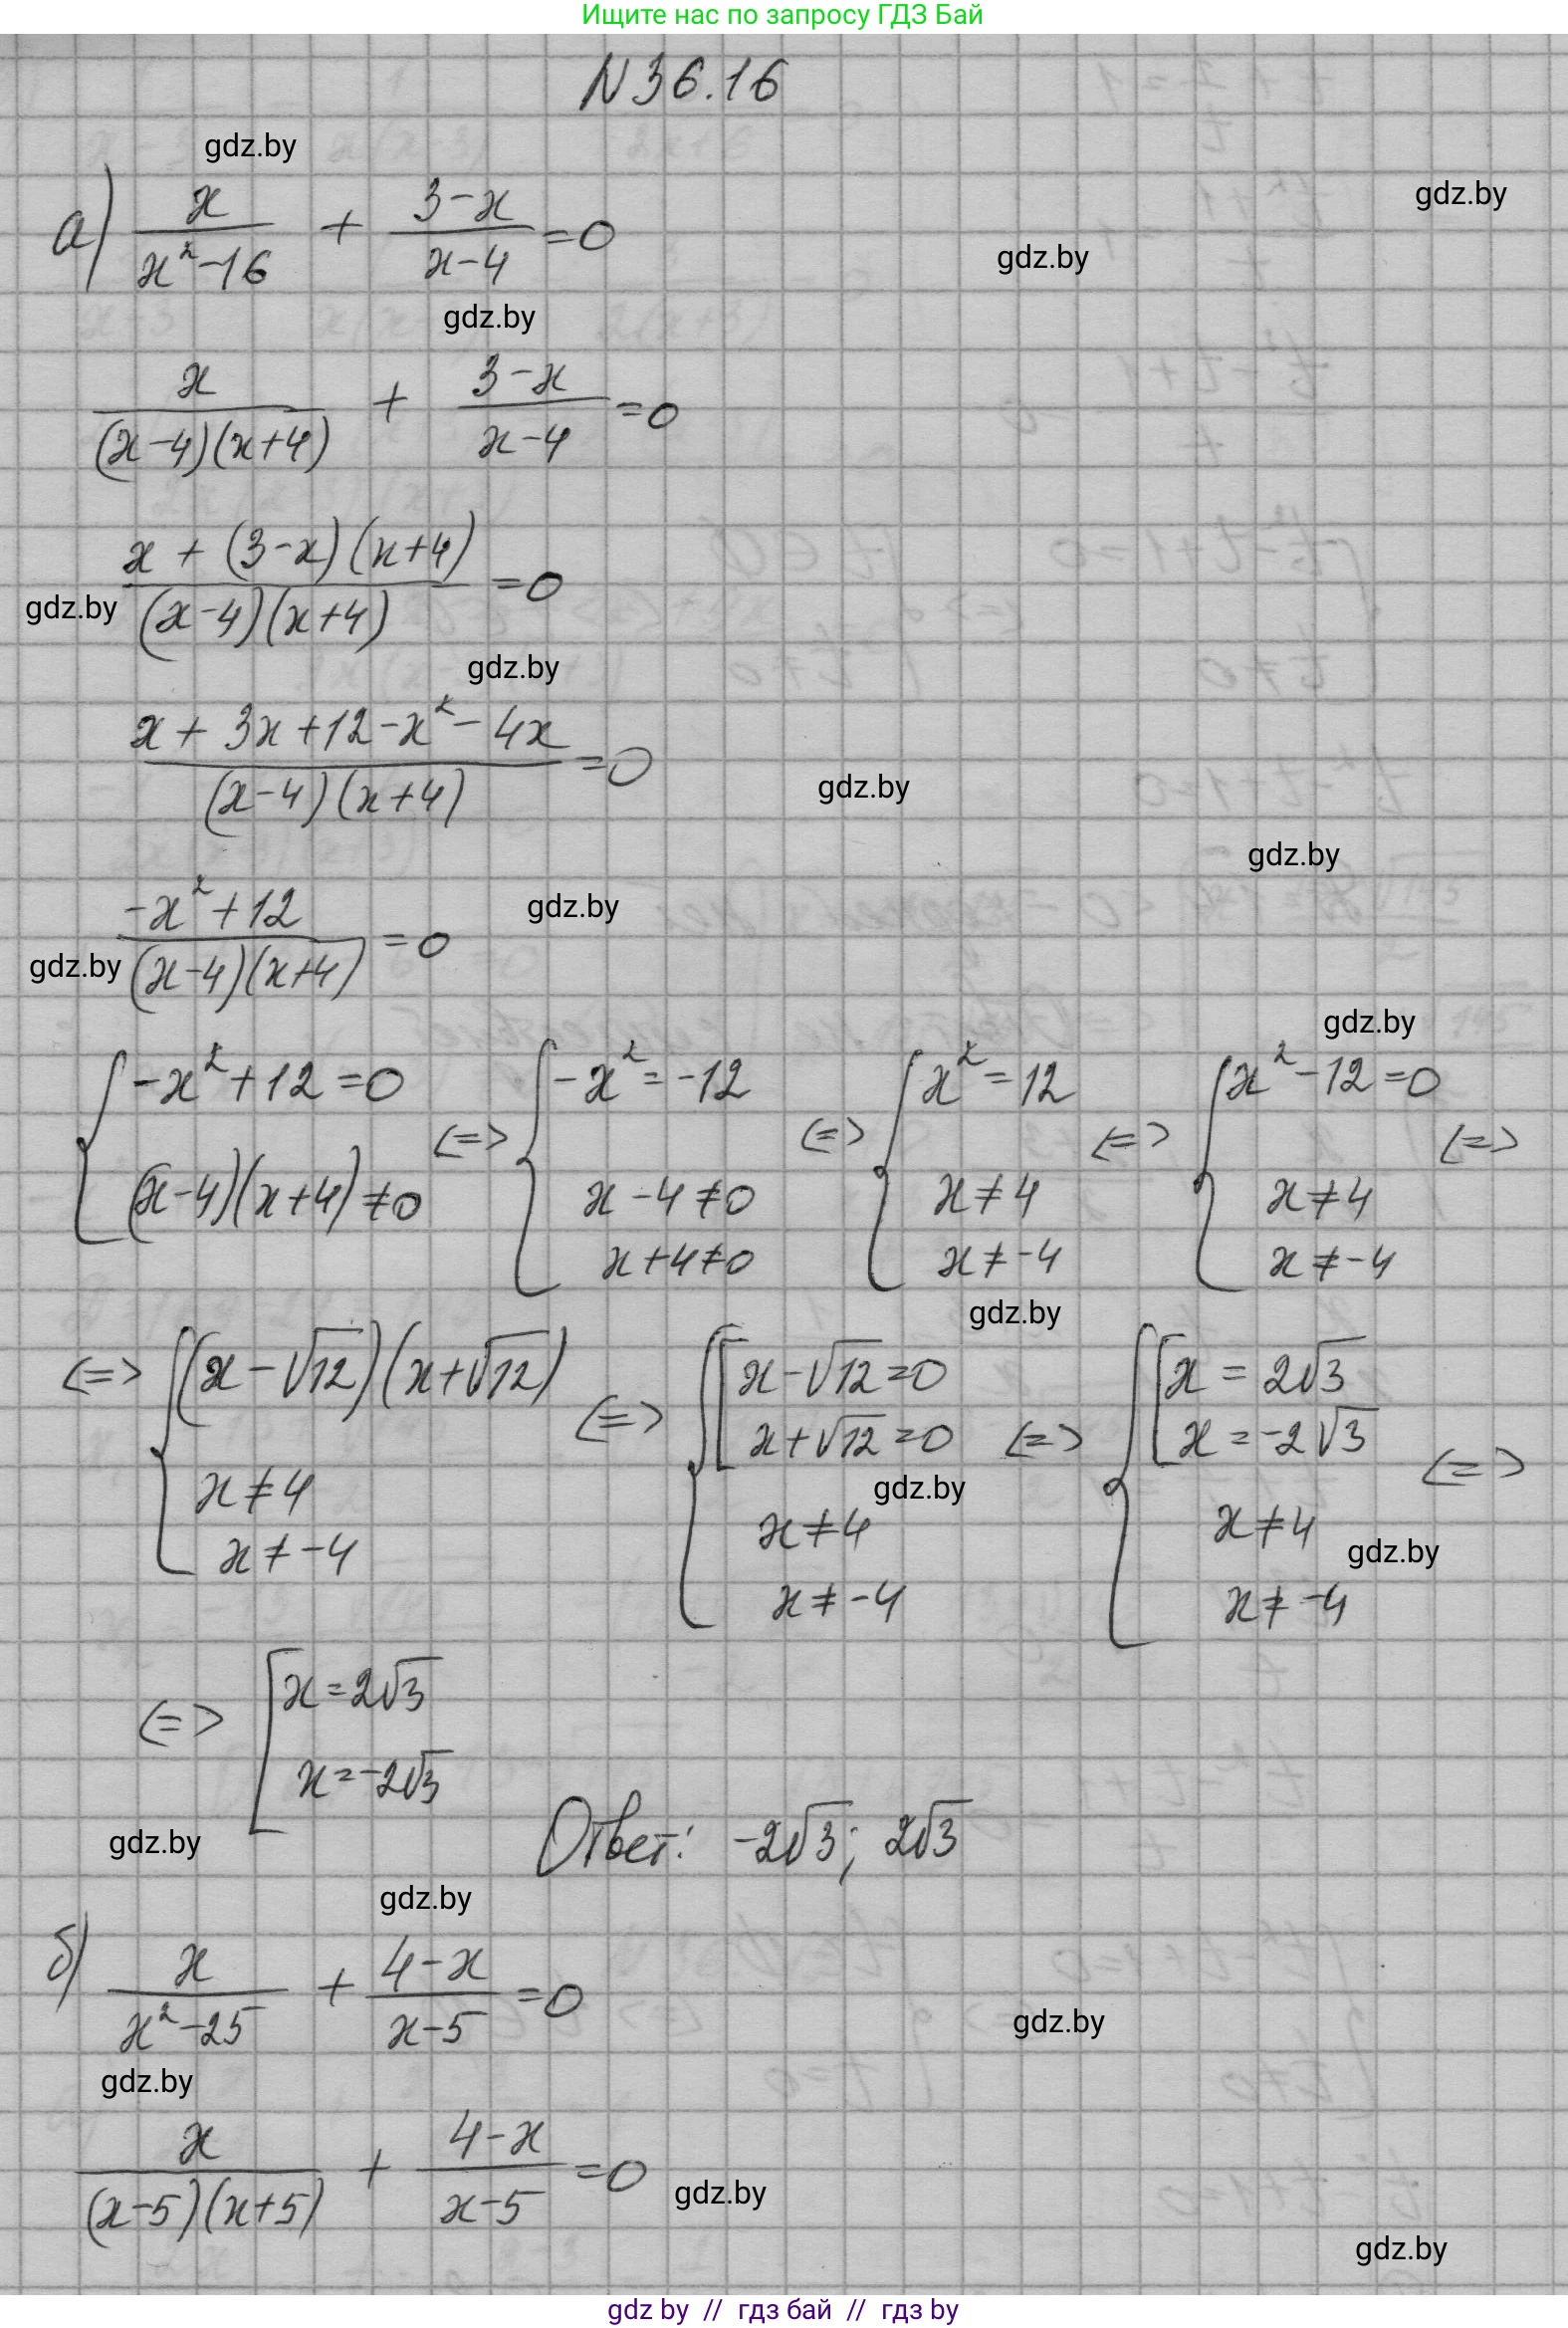 Ищите нас по запросу ГДЗ Бай
N 36.16
gdz.by
gdz.by
а) x/(x²-16) + (3-x)/(x-4) =0
gdz.by
gdz.by
x/((x-4)(x+4)) + (3-x)/(x-4) =0
(x + (3-x)(x+4))/((x-4)(x+4)) =0
gdz.by
gdz.by
(x + 3x +12 -x² - 4x)/((x-4)(x+4)) =0
gdz.by
gdz.by
(-x² +12)/((x-4)(x+4)) =0
gdz.by
gdz.by
gdz.by
{ -x² +12 =0 <=> { -x² = -12 <=> { x² = 12 <=> { x² -12 =0 <=>
(x-4)(x+4) ≠0 x -4 ≠0 x ≠ 4 x ≠ 4
x +4 ≠0 x ≠ -4 x ≠ -4
gdz.by
<=> { (x -√12)(x+√12) <=> { [ x -√12 =0 <=> { [ x = 2√3 <=>
x+√12 =0 x = -2√3
gdz.by
x ≠ 4 x ≠ 4 x ≠ 4
gdz.by
x ≠ -4 x ≠ -4 x ≠ -4
<=> [ x = 2√3
x = -2√3
Ответ: -2√3; 2√3
gdz.by
gdz.by
б) x/(x²-25) + (4-x)/(x-5) =0
gdz.by
gdz.by
x/((x-5)(x+5)) + (4-x)/(x-5) =0
gdz.by
gdz.by
gdz by // гдз бай // гдз by